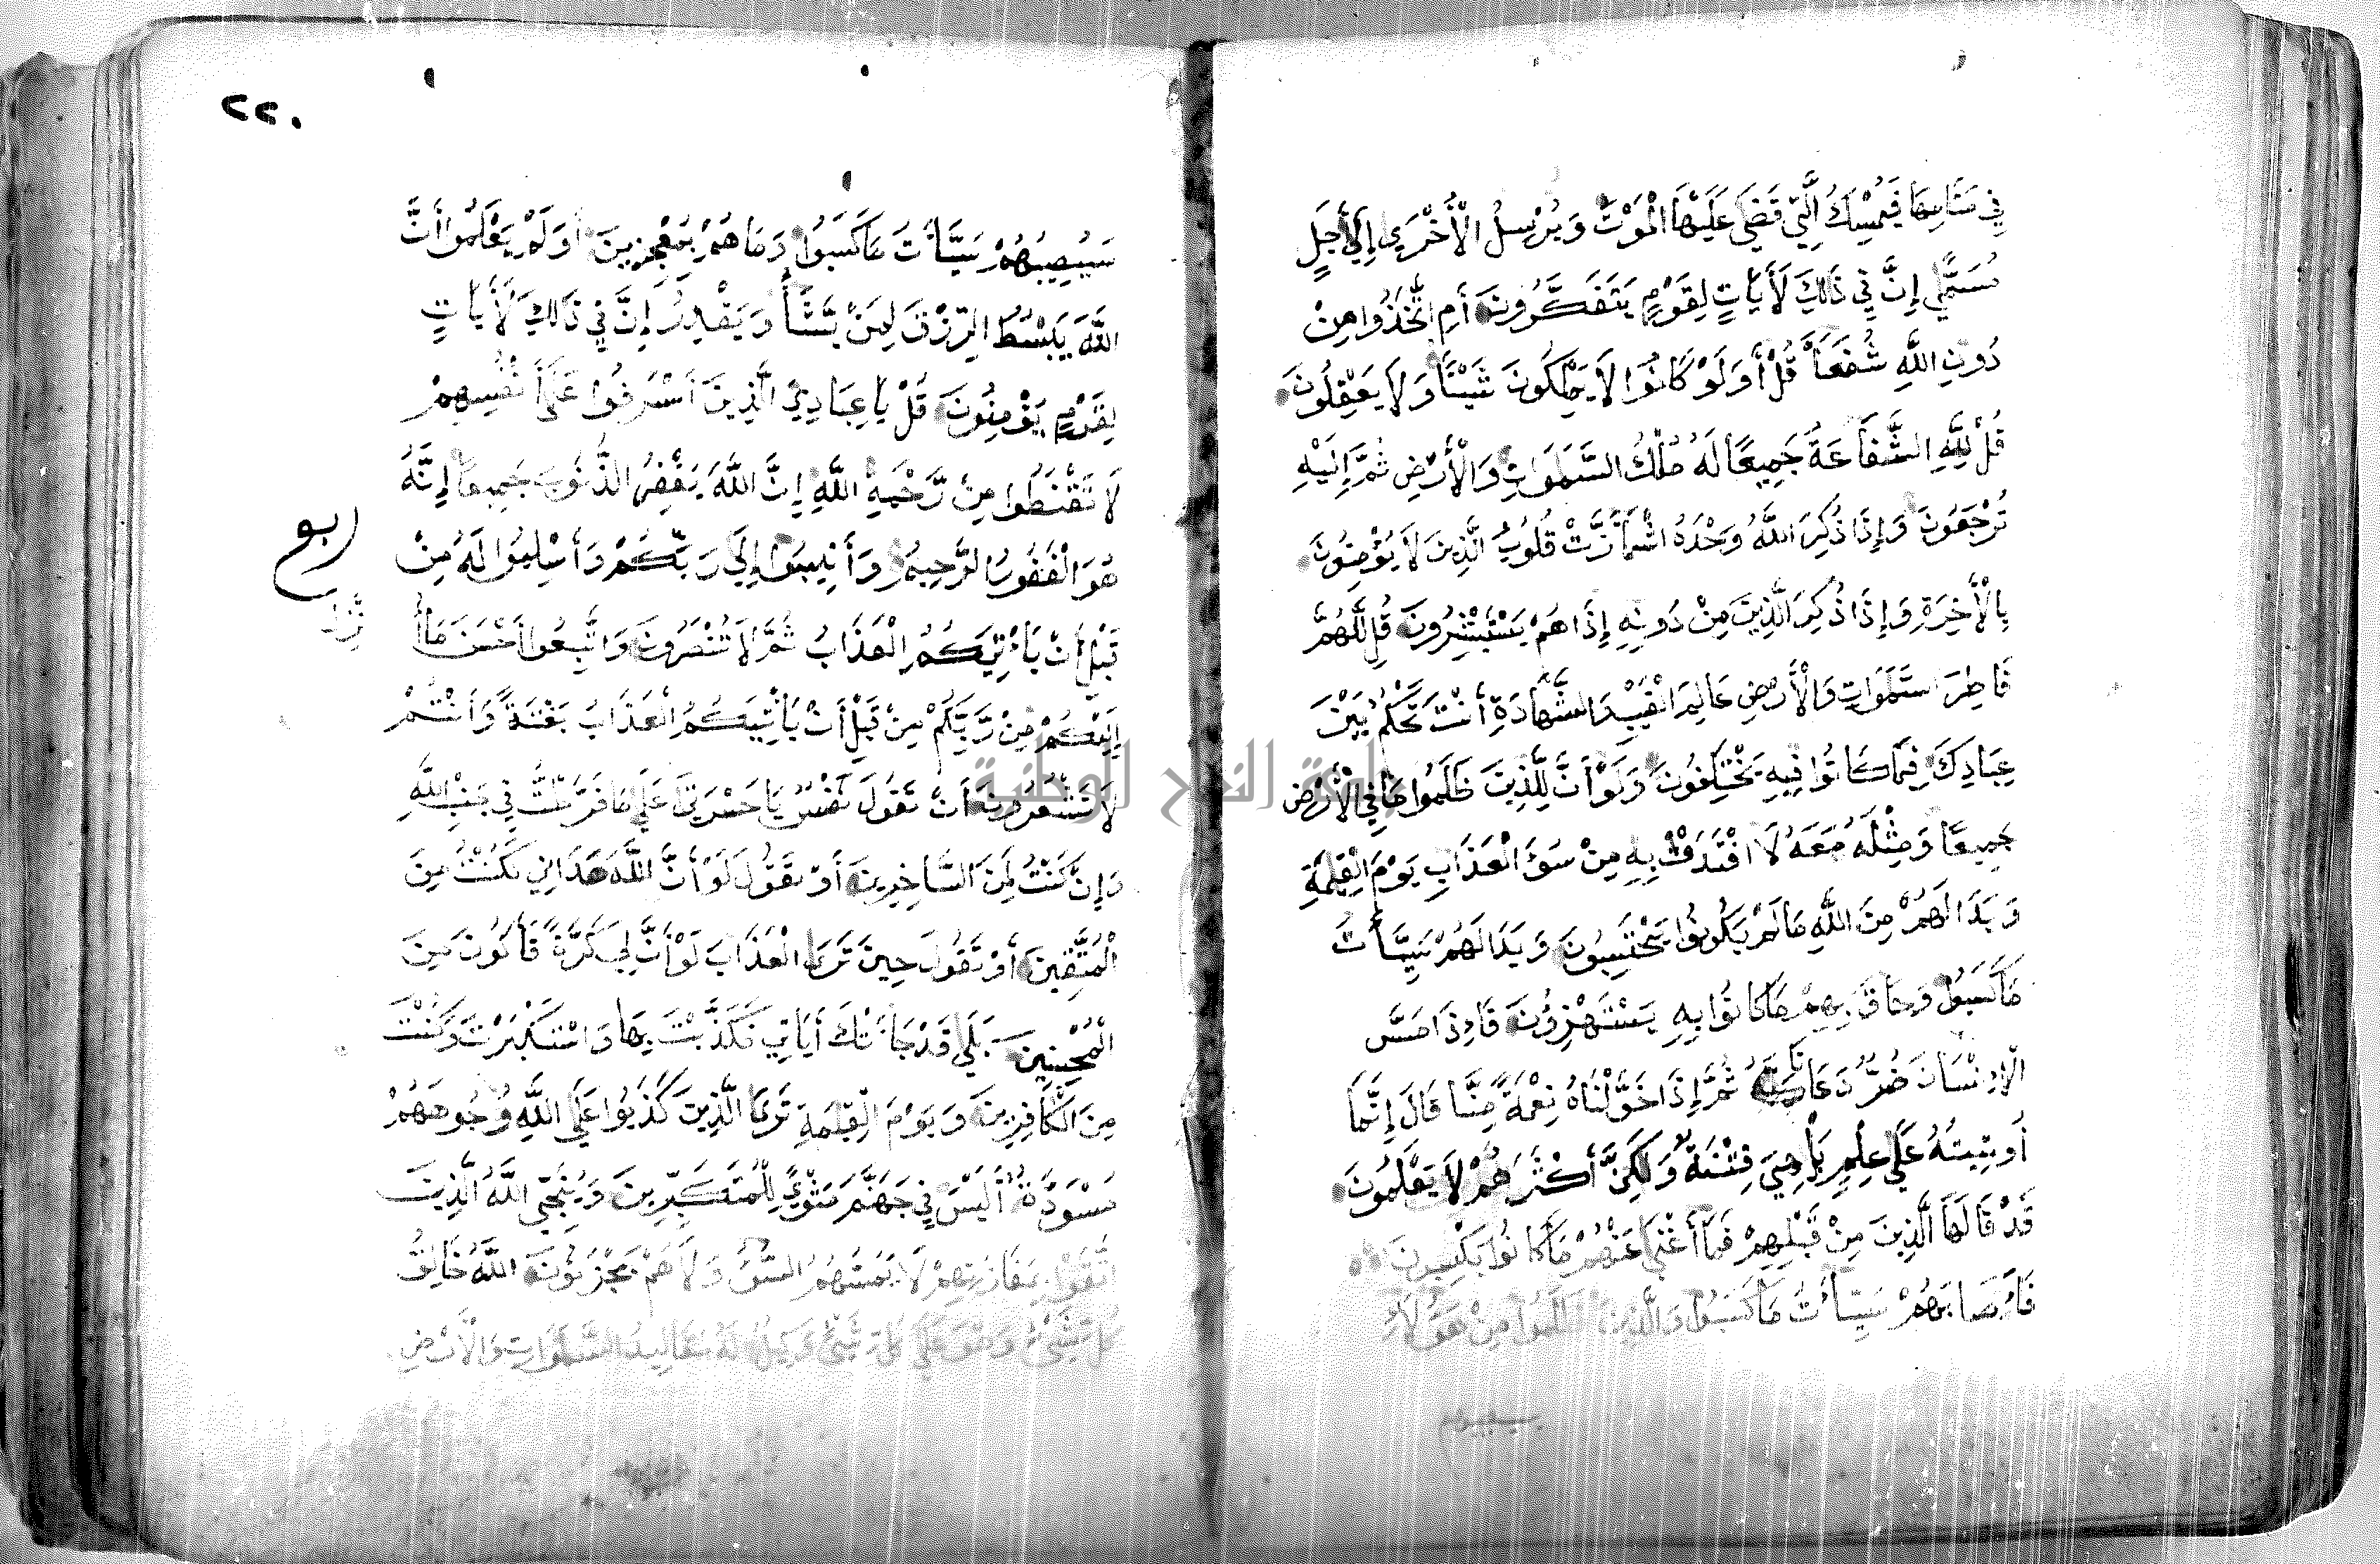 فِي مَنَامِهَا فَيُمْسِكُ الَّتِي قَضَىٰ عَلَيْهَا الْمَوْتَ وَيُرْسِلُ الْأُخْرَىٰ إِلَىٰ أَجَلٍ
مُسَمًّى إِنَّ فِي ذَٰلِكَ لَأَيَاتٍ لِقَوْمٍ يَتَفَكَّرُونَ أَمِ اتَّخَذُوا مِنْ
دُونِ اللَّهِ شُفَعَاءَ قُلْ أَوَلَوْ كَانُوا لَا يَمْلِكُونَ شَيْئًا وَلَا يَعْقِلُونَ
قُلْ لِلَّهِ الشَّفَاعَةُ جَمِيعًا لَهُ مُلْكُ السَّمَٰوَاتِ وَالْأَرْضِ ثُمَّ إِلَيْهِ
تُرْجَعُونَ وَإِذَا ذُكِرَ اللَّهُ وَحْدَهُ اشْمَأَزَّتْ قُلُوبُ الَّذِينَ لَا يُؤْمِنُونَ
بِالْأَخِرَةِ وَإِذَا ذُكِرَ الَّذِينَ مِنْ دُونِهِ إِذَا هُمْ يَسْتَبْشِرُونَ قُلِ اللَّهُمَّ
فَاطِرَ السَّمَٰوَاتِ وَالْأَرْضِ عَالِمَ الْغَيْبِ وَالشَّهَادَةِ أَنْتَ تَحْكُمُ بَيْنَ
عِبَادِكَ فِيمَا كَانُوا فِيهِ يَخْتَلِفُونَ وَلَوْ أَنَّ لِلَّذِينَ ظَلَمُوا مَا فِي الْأَرْضِ
جَمِيعًا وَمِثْلَهُ مَعَهُ لَافْتَدَوْا بِهِ مِنْ سُوءِ الْعَذَابِ يَوْمَ الْقِيَٰمَةِ
وَبَدَا لَهُمْ مِنَ اللَّهِ مَا لَمْ يَكُونُوا يَحْتَسِبُونَ وَبَدَا لَهُمْ سَيِّـَٔاتُ
مَا كَسَبُوا وَحَاقَ بِهِمْ مَا كَانُوا بِهِ يَسْتَهْزِؤُنَ فَإِذَا مَسَّ
الْإِنْسَانَ ضُرٌّ دَعَانَا ثُمَّ إِذَا خَوَّلْنَاهُ نِعْمَةً مِنَّا قَالَ إِنَّمَا
أُوتِيتُهُ عَلَىٰ عِلْمٍ بَلْ هِيَ فِتْنَةٌ وَلَٰكِنَّ أَكْثَرَهُمْ لَا يَعْلَمُونَ
قَدْ قَالَهَا الَّذِينَ مِنْ قَبْلِهِمْ فَمَا أَغْنَىٰ عَنْهُمْ مَا كَانُوا يَكْسِبُونَ
فَأَصَابَهُمْ سَيِّـَٔاتُ مَا كَسَبُوا وَالَّذِينَ ظَلَمُوا مِنْ هَٰؤُلَاءِ
سيصيبهم
٢٢٠
سَيُصِيبُهُمْ سَيِّـَٔاتُ مَا كَسَبُوا وَمَا هُمْ بِمُعْجِزِينَ أَوَلَمْ يَعْلَمُوا أَنَّ
اللَّهَ يَبْسُطُ الرِّزْقَ لِمَنْ يَشَاءُ وَيَقْدِرُ إِنَّ فِي ذَٰلِكَ لَأَيَاتٍ
لِقَوْمٍ يُؤْمِنُونَ قُلْ يَا عِبَادِيَ الَّذِينَ أَسْرَفُوا عَلَىٰ أَنْفُسِهِمْ
لَا تَقْنَطُوا مِنْ رَّحْمَةِ اللَّهِ إِنَّ اللَّهَ يَغْفِرُ الذُّنُوبَ جَمِيعًا إِنَّهُ
هُوَ الْغَفُورُ الرَّحِيمُ وَأَنِيبُوا إِلَىٰ رَبِّكُمْ وَأَسْلِمُوا لَهُ مِنْ
قَبْلِ أَنْ يَأْتِيَكُمُ الْعَذَابُ ثُمَّ لَا تُنْصَرُونَ وَاتَّبِعُوا أَحْسَنَ مَا أُ
إِلَيْكُمْ مِنْ رَّبِّكُمْ مِنْ قَبْلِ أَنْ يَأْتِيَكُمُ الْعَذَابُ بَغْتَةً وَأَنْتُمْ
لَا تَشْعُرُونَ أَنْ تَقُولَ نَفْسٌ يَا حَسْرَتَىٰ عَلَىٰ مَا فَرَّطْتُ فِي جَنْبِ اللَّهِ
وَإِنْ كُنْتُ لَمِنَ السَّاخِرِينَ أَوْ تَقُولَ لَوْ أَنَّ اللَّهَ هَدَانِي لَكُنْتُ مِنَ
الْمُتَّقِينَ أَوْ تَقُولَ حِينَ تَرَى الْعَذَابَ لَوْ أَنَّ لِي كَرَّةً فَأَكُونَ مِنَ
الْمُحْسِنِينَ بَلَىٰ قَدْ جَاءَتْكَ أَيَاتِي فَكَذَّبْتَ بِهَا وَاسْتَكْبَرْتَ وَكُنْتَ
مِنَ الْكَافِرِينَ وَيَوْمَ الْقِيَٰمَةِ تَرَى الَّذِينَ كَذَبُوا عَلَى اللَّهِ وُجُوهُهُمْ
مُسْوَدَّةٌ أَلَيْسَ فِي جَهَنَّمَ مَثْوًى لِلْمُتَكَبِّرِينَ وَيُنَجِّي اللَّهُ الَّذِينَ
اتَّقَوْا بِمَفَازَتِهِمْ لَا يَمَسُّهُمُ السُّوءُ وَلَا هُمْ يَحْزَنُونَ اللَّهُ خَالِقُ
كُلِّ شَيْءٍ وَهُوَ عَلَىٰ كُلِّ شَيْءٍ وَكِيلٌ لَهُ مَقَالِيدُ السَّمَٰوَاتِ وَالْأَرْضِ
ربع
جامعة النجاح الوطنية